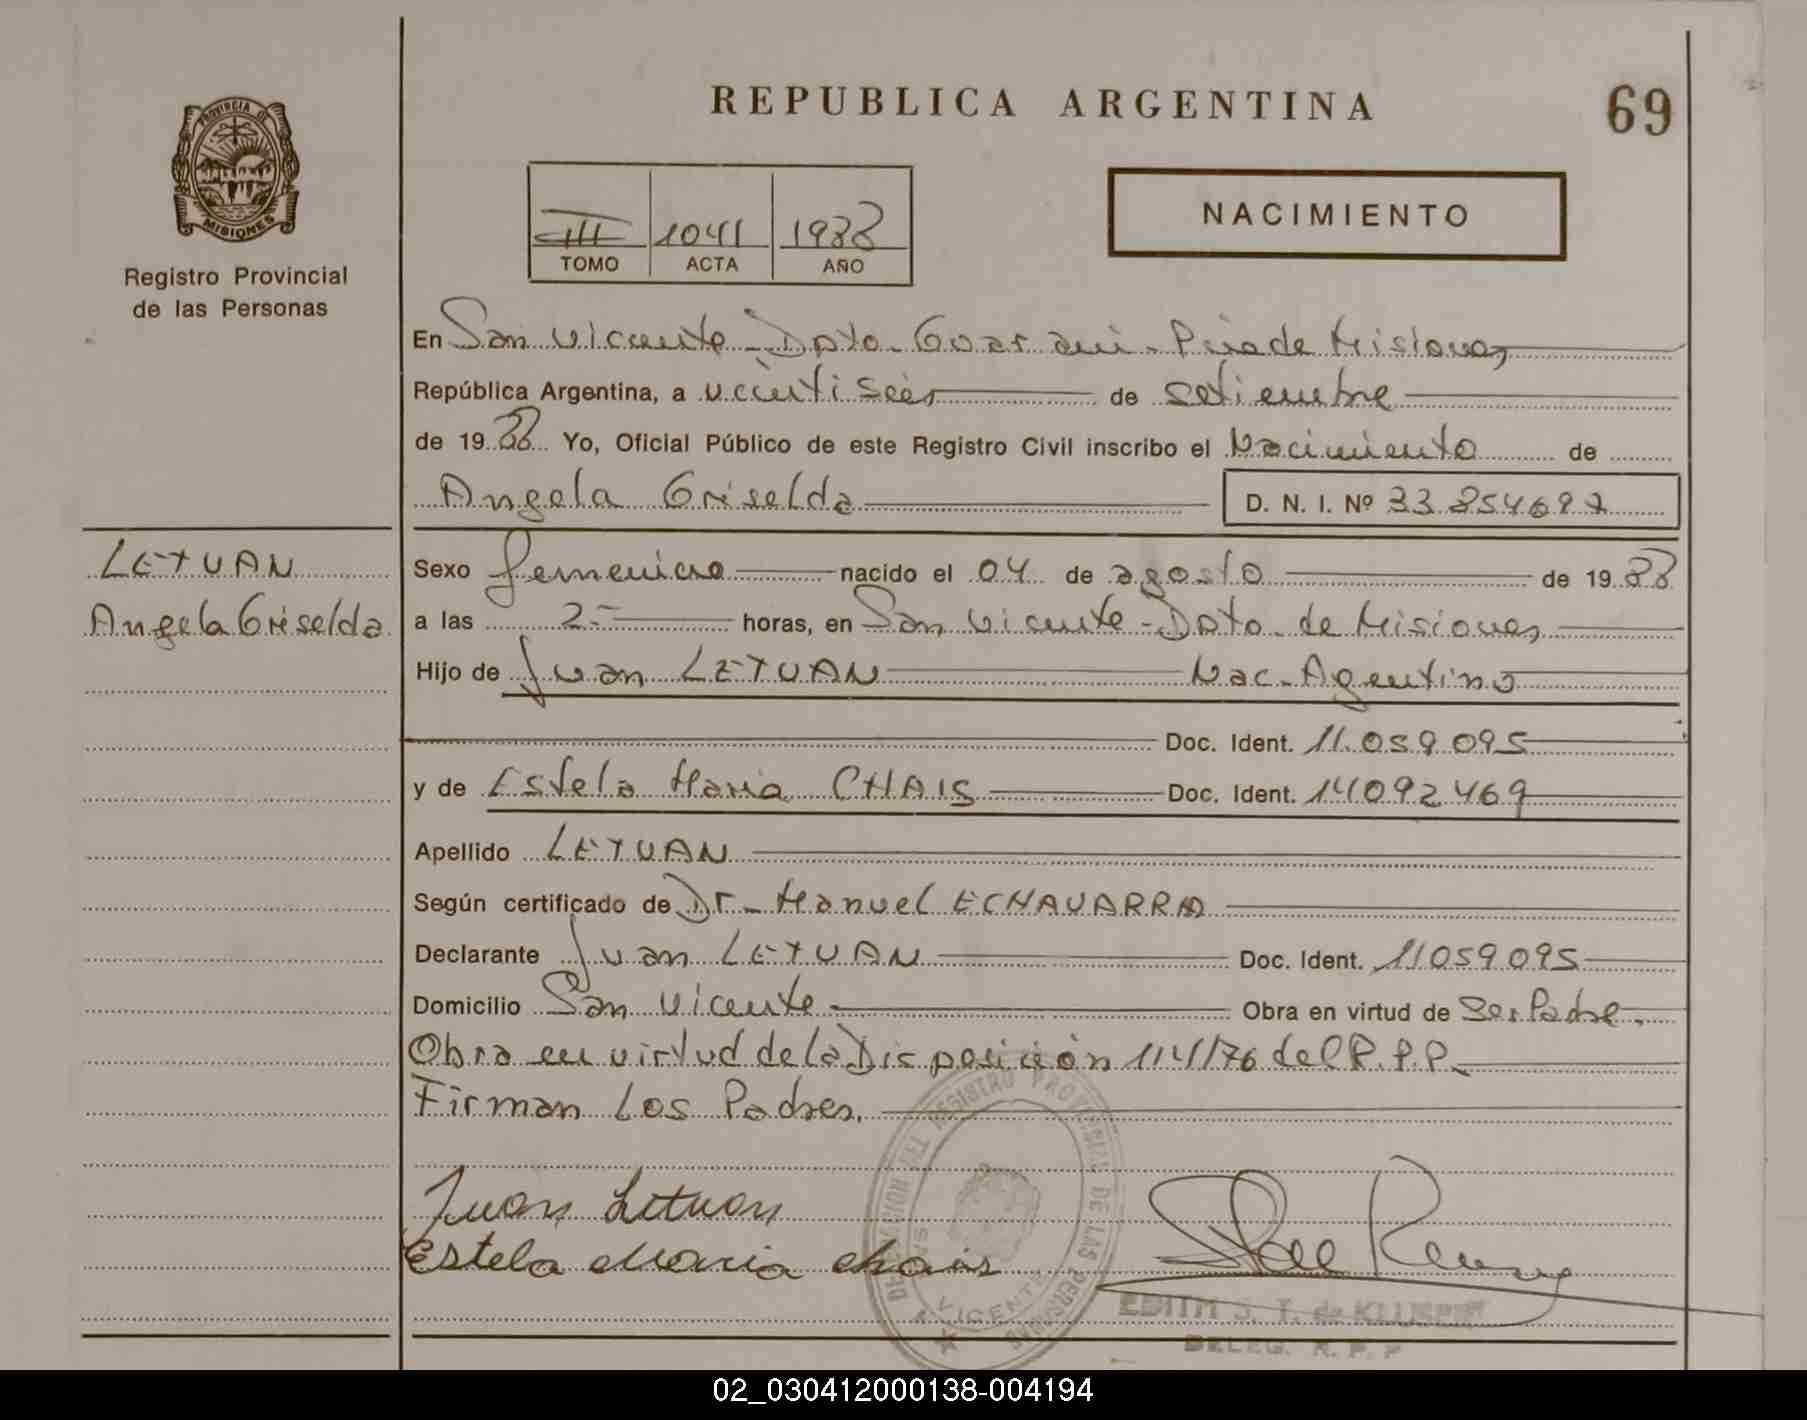 REPUBLICA ARGENTINA
69
PROVINCIA DE
MISIONES
Registro Provincial
de las Personas
NACIMIENTO
III 1041 1988
TOMO ACTA AÑO
En San Vicente - Dpto. Guarani - Pcia de Misiones,
República Argentina, a veintiseis de setiembre
de 1988 Yo, Oficial Público de este Registro Civil inscribo el Nacimiento de
Angela Griselda D. N. I. Nº 33.854697
LETUAN
Angela Griselda
Sexo femenino nacido el 04 de agosto de 1988
a las 2.- horas, en San Vicente - Dpto. de Misiones,
Hijo de Juan LETUAN Nac. Agentino
Doc. Ident. 11.059.095
y de Estela Maria CHAIS Doc. Ident. 14092469
Apellido LETUAN
Según certificado de Dr. Manuel ECHAVARRIA
Declarante Juan LETUAN Doc. Ident. 11059095
Domicilio San Vicente Obra en virtud de Ser Padre.
Obra en virtud de la Disposición 114/76 del R.P.P.
Firman Los Padres.
Juan Letuan
Estela Maria Chais
DELEGACION DEL REGISTRO PROVINCIAL DE LAS PERSONAS
SAN VICENTE
EDITH S. T. de
DELEG. R. P. P
02_030412000138-004194